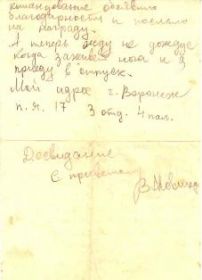 командование объявило
благодарности и послало
на награду.
А теперь жду не дождусь
когда заживёт нога и я
приеду в отпуск.
Мой адрес г. Воронеж
п. я. 17 3 отд. 4 пал.
Досвидание
С приветом
В.